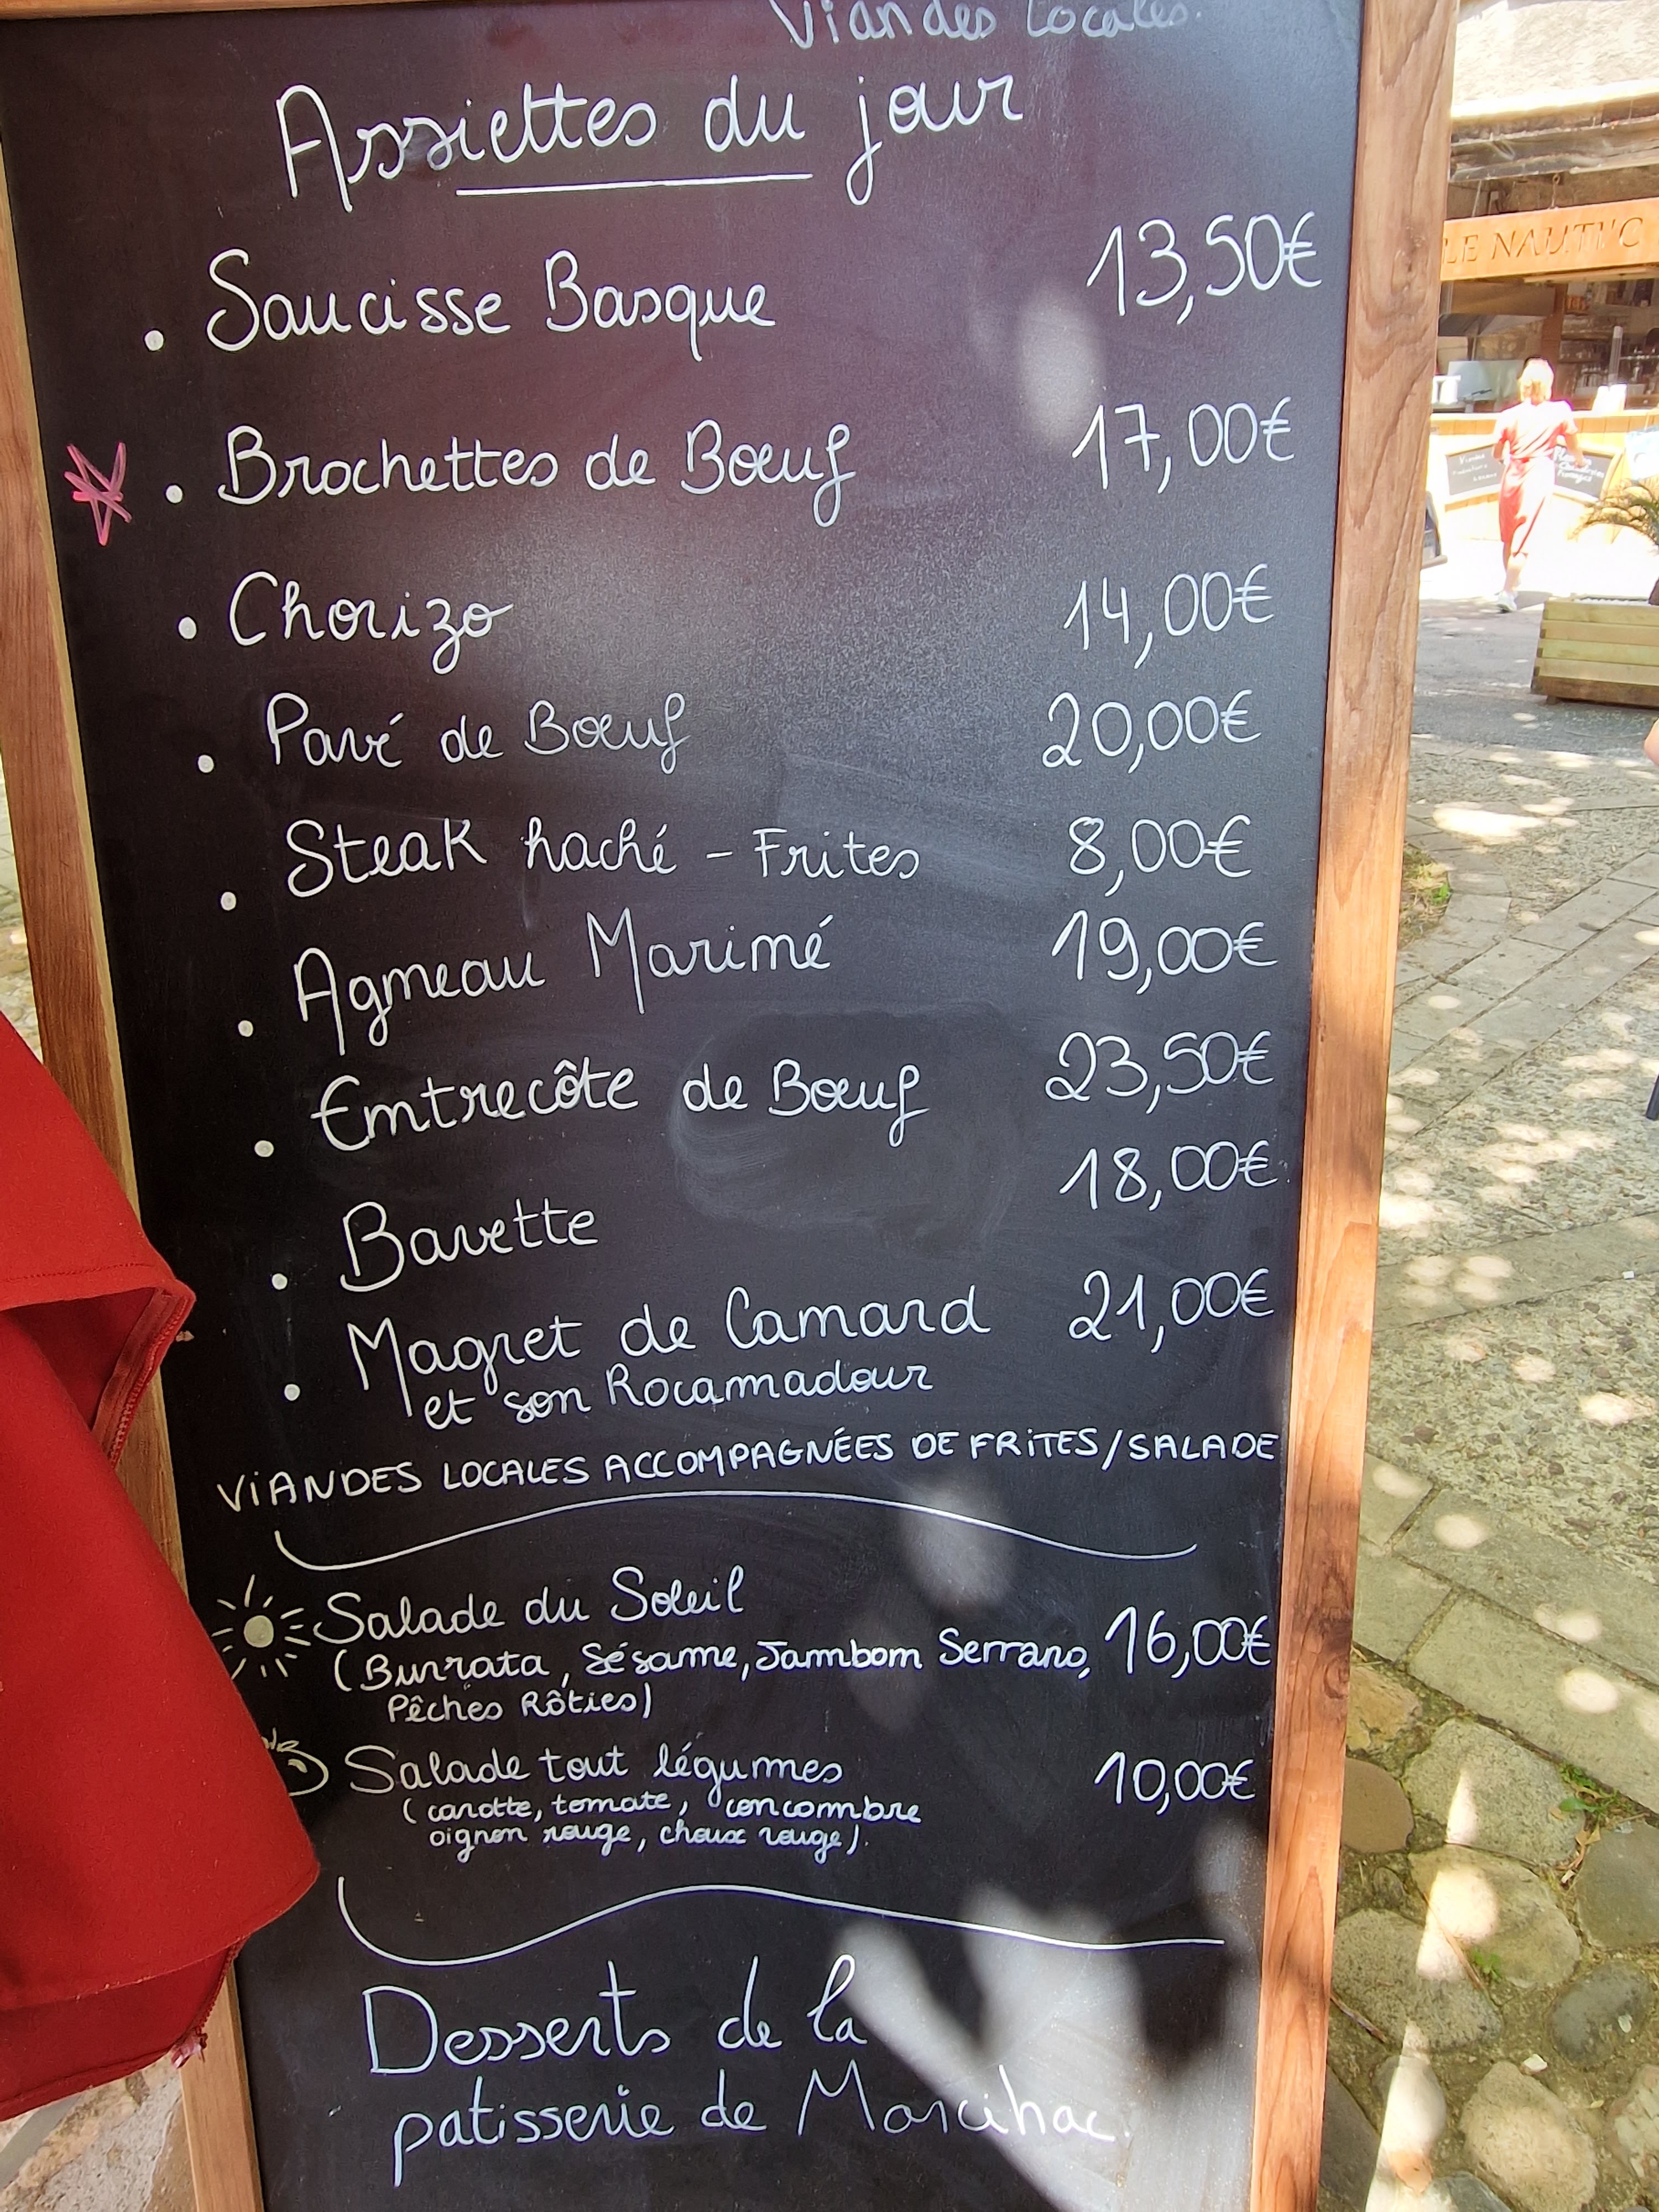 Viandes Locales.
Assiettes du jour
. Saucisse Basque 13,50€
. Brochettes de Bœuf 17,00€
. Chorizo 14,00€
. Pavé de Bœuf 20,00€
. Steak haché - Frites 8,00€
. Agneau Mariné 19,00€
. Entrecôte de Bœuf 23,50€
. Bavette 18,00€
. Magret de Canard 21,00€
et son Rocamadour
VIANDES LOCALES ACCOMPAGNÉES DE FRITES/SALADE
Salade du Soleil
(Burrata, Sésame, Jambon Serrano, 16,00€
Pêches Rôties)
Salade tout légumes 10,00€
(carotte, tomate, concombre
oignon rouge, choux rouge).
Desserts de la
patisserie de Marcihac.
LE NAUTI'C